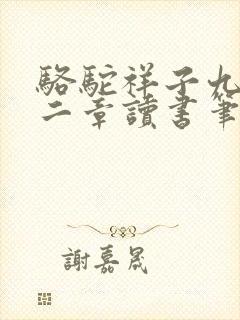 駱駝祥子九
二章讀書筆
謝嘉晟